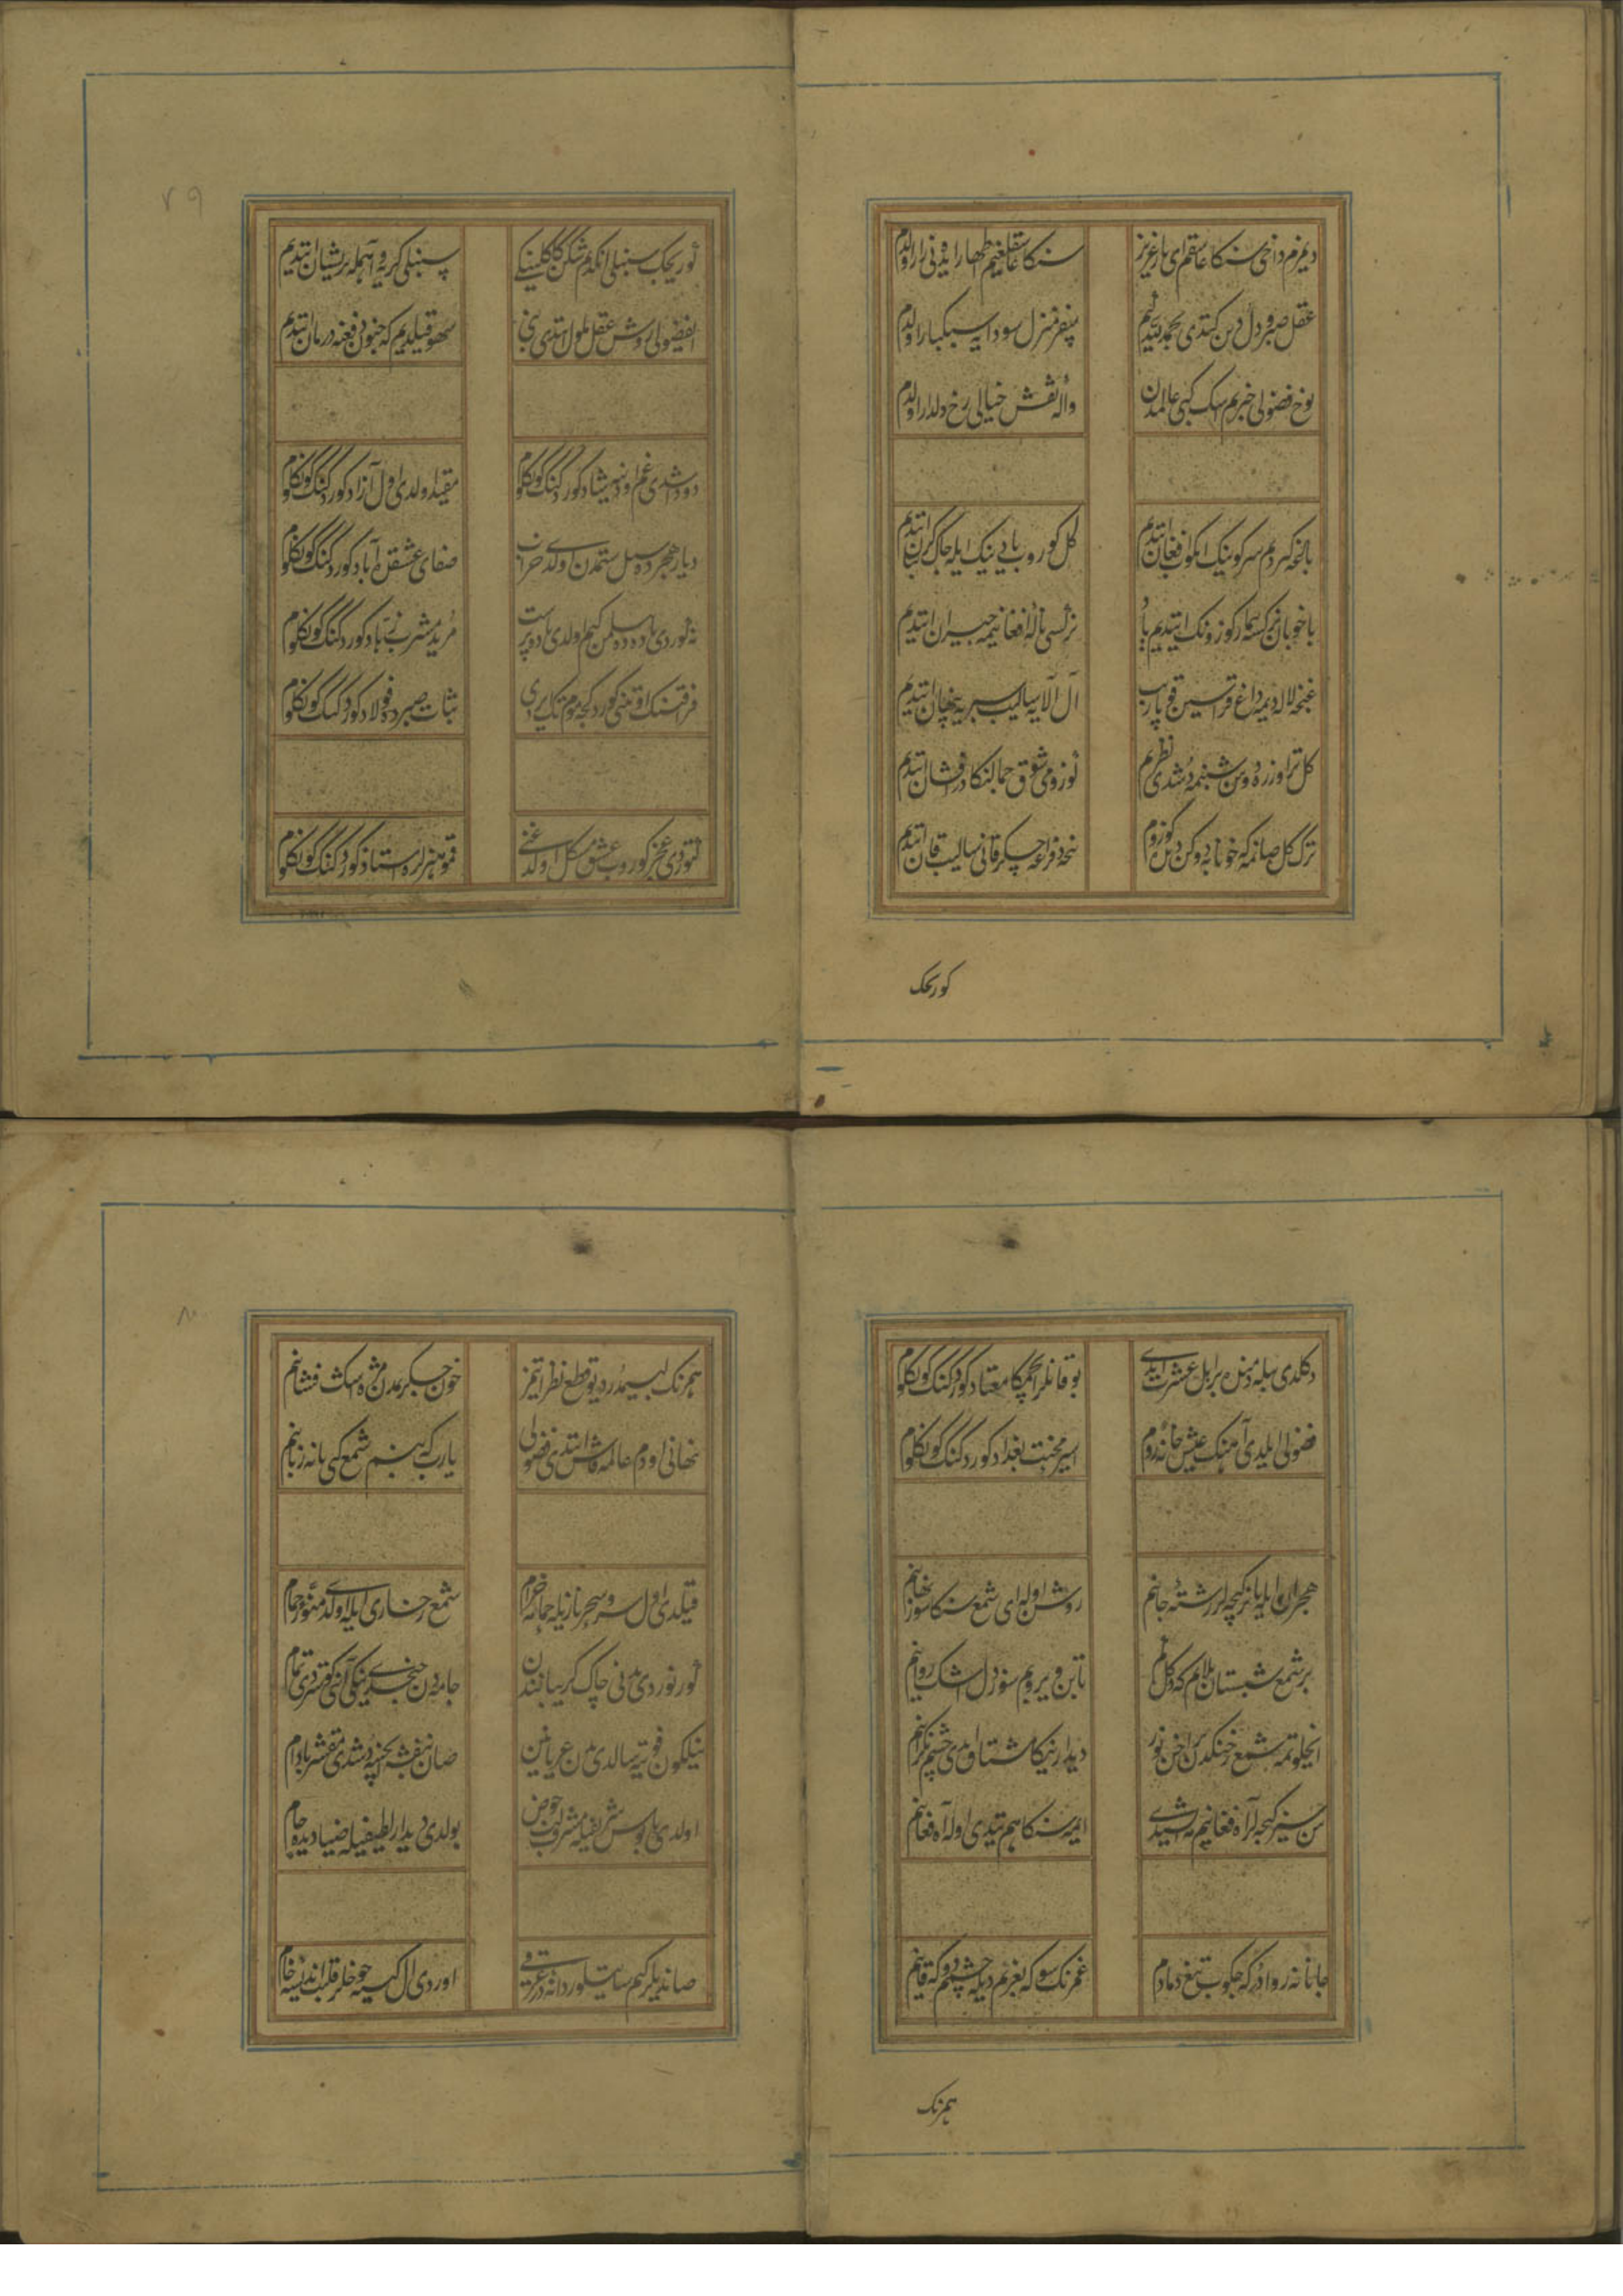 دیمزم داخی سنکا عاشقم ای یار عزیز سنکا عاشقلغیم اظهار ایده نی زار اولدم
عقل و صبر و دل و دین کتدی بحمد الله سفر منزل سودایه سبکبار اولدم
یوخ فضولی خبرم اشک کبی عالمدن واله نقش خیالی رخ دلدار اولدم
باغه کیردم سر کوینک انکوب افغان ایتدم کل کوروب یادینک ایله چاک کریبان ایتدم
نرکسی ناله و افغانیمه حیران ایتدم
غنچه لاله دیمه داغ قراسین قوپاریب آل الایه سالیب سیریه پنهان ایتدم
کل تر اوزره دوین شبنمه دشدی نظرم کوزومی شوق جمالنکا درافشان ایتدم
ترک کل صانمه که خونابه دوکن دیکن کوزوم
کوریجک
کوریجک سنبلی انکدم شکن کاکلینکی سنبلی کریه و آهمله پریشان ایتدم
ای فضولی روش عقل ملول ایتدی بنی سهو قیلدیم که جنون دفعنه درمان ایتدم
دوداشدی غم اودنه شاد کوردکنک کونکلوم مقید اولدی اول آزاد کوردکنک کونکلوم
دیار هجرده سیل ستمدن اولدی خراب فضای عشقده آباد کوردکنک کونکلوم
نه کوردی باده ده بیلمن که اولدی باده پرست مرید مشرب زهاد کوردکنک کونکلوم
فراقنک اوتنی کوردکجه موم تک اریدی ثبات صبرده فولاد کوردکنک کونکلوم
کتوردی عجز کوروب عشق مشکل اولدغنی قمو هنرلره استاد کوردکنک کونکلوم
دکلدی بیله دمنده بر اهل عشرت ایدی بو قانلر ایچمکا معتاد کوردکنک کونکلوم
فضولی ایلدی آهنک عیش خانه روم اسیر محنت بغداد کوردکنک کونکلوم
هجران ایله یانر کیجه لر رشته جانم روشن اوله ای شمع سنکا سوز نهانم
بر شمع شبستان بلایم که دکل کم تابن ویریر سوز دل اشک روانم
انجلوتمه شمع رخنکدن اخن نور دیدارنیکا مشتاق ایدی چشم نکرانم
سن سیز کیجه لر آه و فغانیم یتشیدی ایمه سنکا هم یتدی اوله آه و فغانم
جانا نه روادر که چکوب تیغ دمادم غمزنک سوکه بغرم دیله چشمم دوکه قانم
همرنک
همرنک لبیمدر دیو قطع نظر ایتمز خون جکرمدن مژه اشک فشانم
پنهانی اودم عالمه فاش ایتدی فضولی یارب که بنم شمع کبی یانه زبانم
قیلدی اول سرو سحر ناز ایله حمامه خرام شمع رخساری ایله اولدی منور حمام
کورنوردی بدنی چاک کریبانندن جامه دن چخدی ینکی آینی کوستردی تمام
نیلکون فوته یه سالدی بدن عریانین صان بنفشه ایچنه دشدی مقشر بادام
اولدی پابوس شریفیله مشرف لب حوض بولدی دیدار لطیفیله ضیا دیده جام
صاندیلر کیم ساتیلور دانه در عرقی اوردی ال کیسه یه چوخلر قلب اندیشه خام